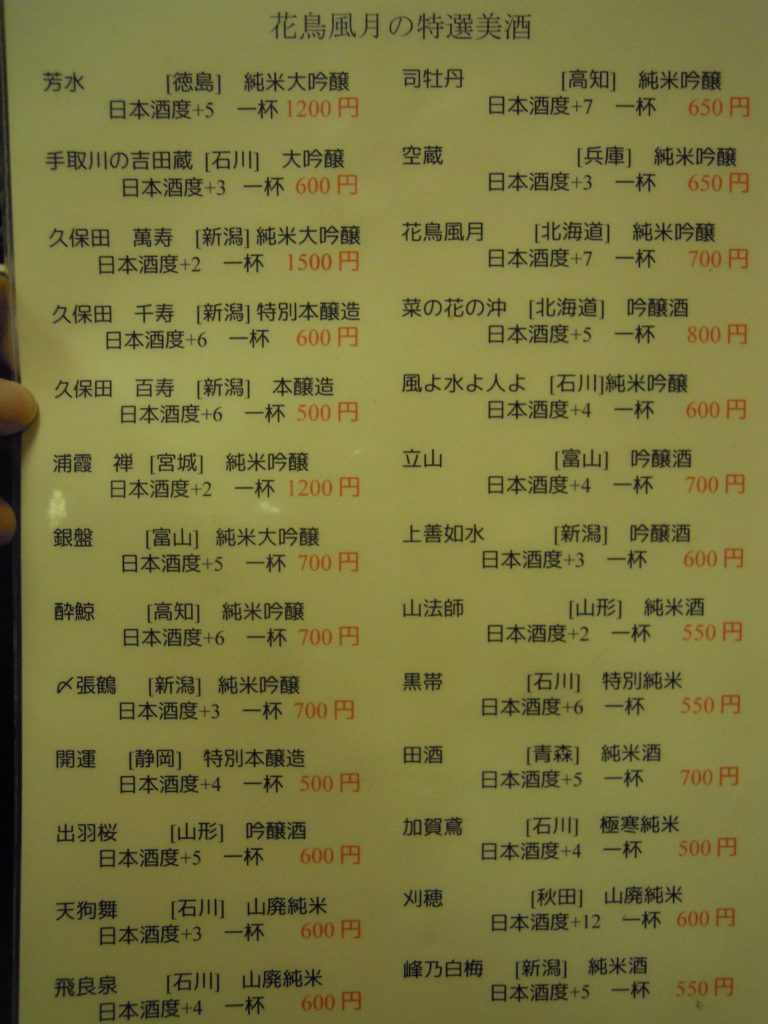 花鳥風月の特選美酒
芳水 [徳島] 純米大吟醸
日本酒度+5 一杯 1200 円
手取川の吉田蔵 [石川] 大吟醸
日本酒度+3 一杯 600 円
久保田 萬寿 [新潟] 純米大吟醸
日本酒度+2 一杯 1500 円
久保田 千寿 [新潟] 特別本醸造
日本酒度+6 一杯 600 円
久保田 百寿 [新潟] 本醸造
日本酒度+6 一杯 500 円
浦霞 禅 [宮城] 純米吟醸
日本酒度+2 一杯 1200 円
銀盤 [富山] 純米大吟醸
日本酒度+5 一杯 700 円
酔鯨 [高知] 純米吟醸
日本酒度+6 一杯 700 円
〆張鶴 [新潟] 純米吟醸
日本酒度+3 一杯 700 円
開運 [静岡] 特別本醸造
日本酒度+4 一杯 500 円
出羽桜 [山形] 吟醸酒
日本酒度+5 一杯 600 円
天狗舞 [石川] 山廃純米
日本酒度+3 一杯 600 円
飛良泉 [石川] 山廃純米
日本酒度+4 一杯 600 円
司牡丹 [高知] 純米吟醸
日本酒度+7 一杯 650 円
空蔵 [兵庫] 純米吟醸
日本酒度+3 一杯 650 円
花鳥風月 [北海道] 純米吟醸
日本酒度+7 一杯 700 円
菜の花の沖 [北海道] 吟醸酒
日本酒度+5 一杯 800 円
風よ水よ人よ [石川]純米吟醸
日本酒度+4 一杯 600 円
立山 [富山] 吟醸酒
日本酒度+4 一杯 700 円
上善如水 [新潟] 吟醸酒
日本酒度+3 一杯 600 円
山法師 [山形] 純米酒
日本酒度+2 一杯 550 円
黒帯 [石川] 特別純米
日本酒度+6 一杯 550 円
田酒 [青森] 純米酒
日本酒度+5 一杯 700 円
加賀鳶 [石川] 極寒純米
日本酒度+4 一杯 500 円
刈穂 [秋田] 山廃純米
日本酒度+12 一杯 600 円
峰乃白梅 [新潟] 純米酒
日本酒度+5 一杯 550 円